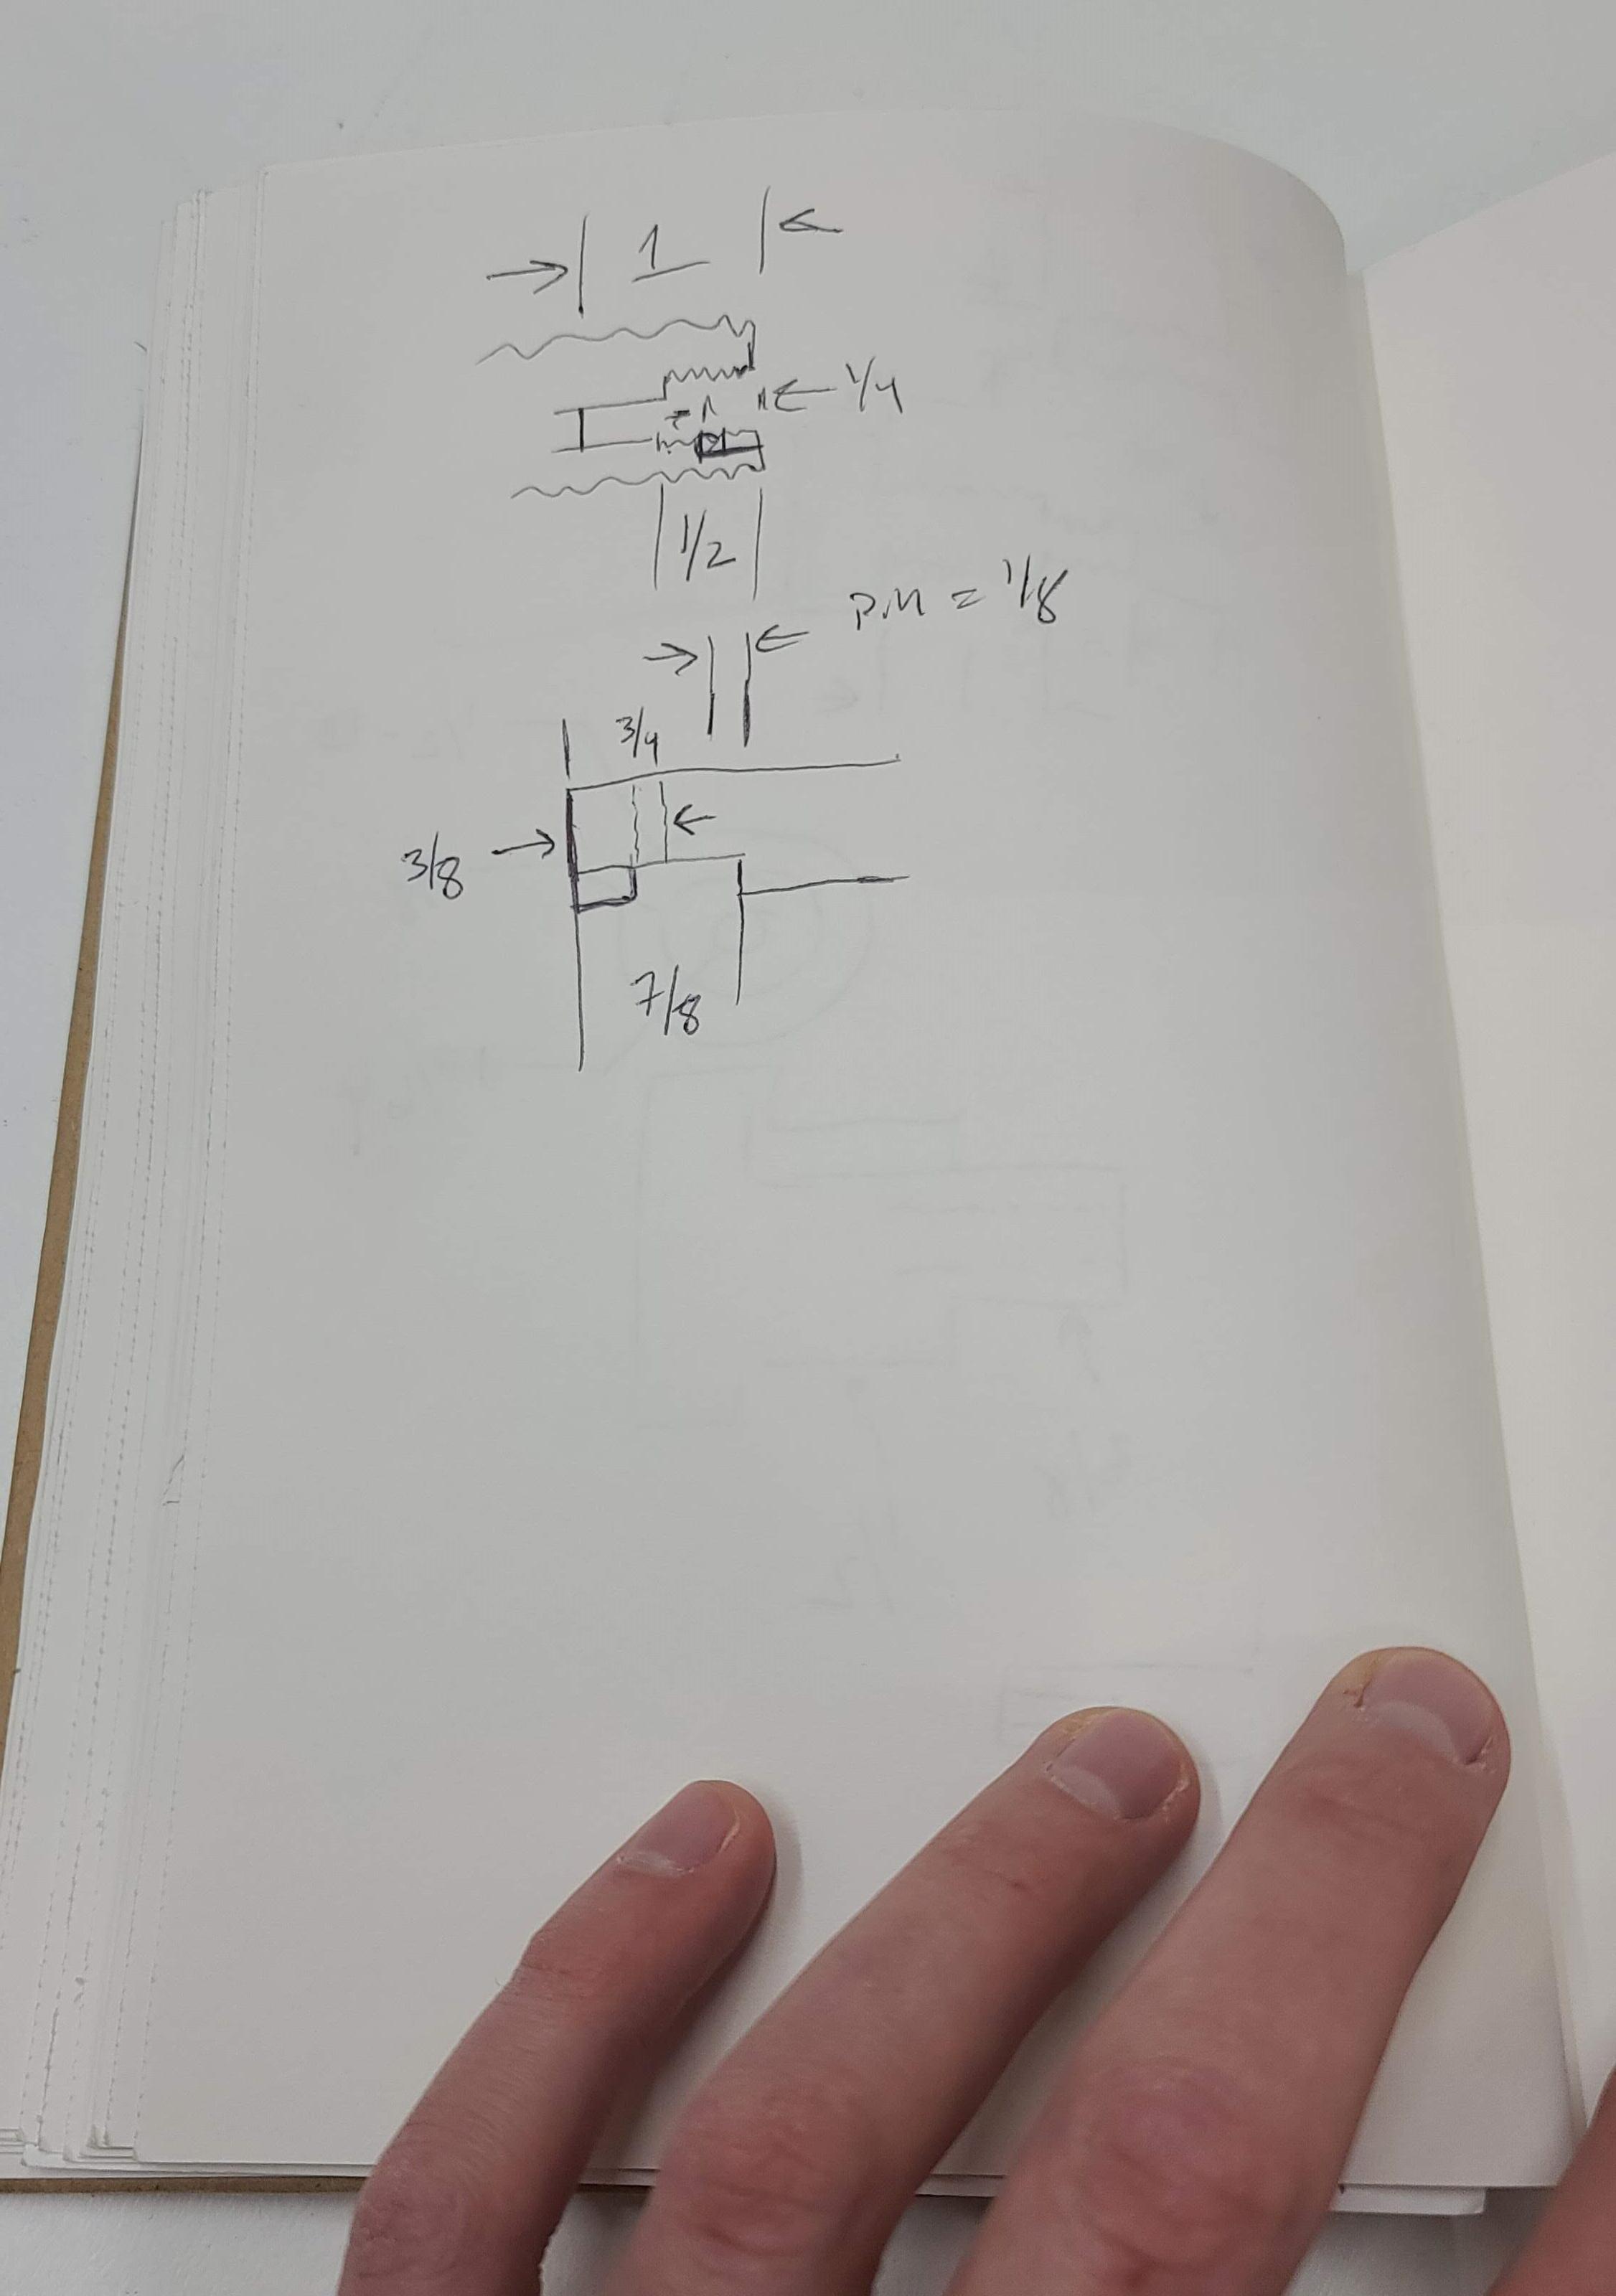 1
1/4
1/2
P.M = 1/8
3/4
3/8
7/8